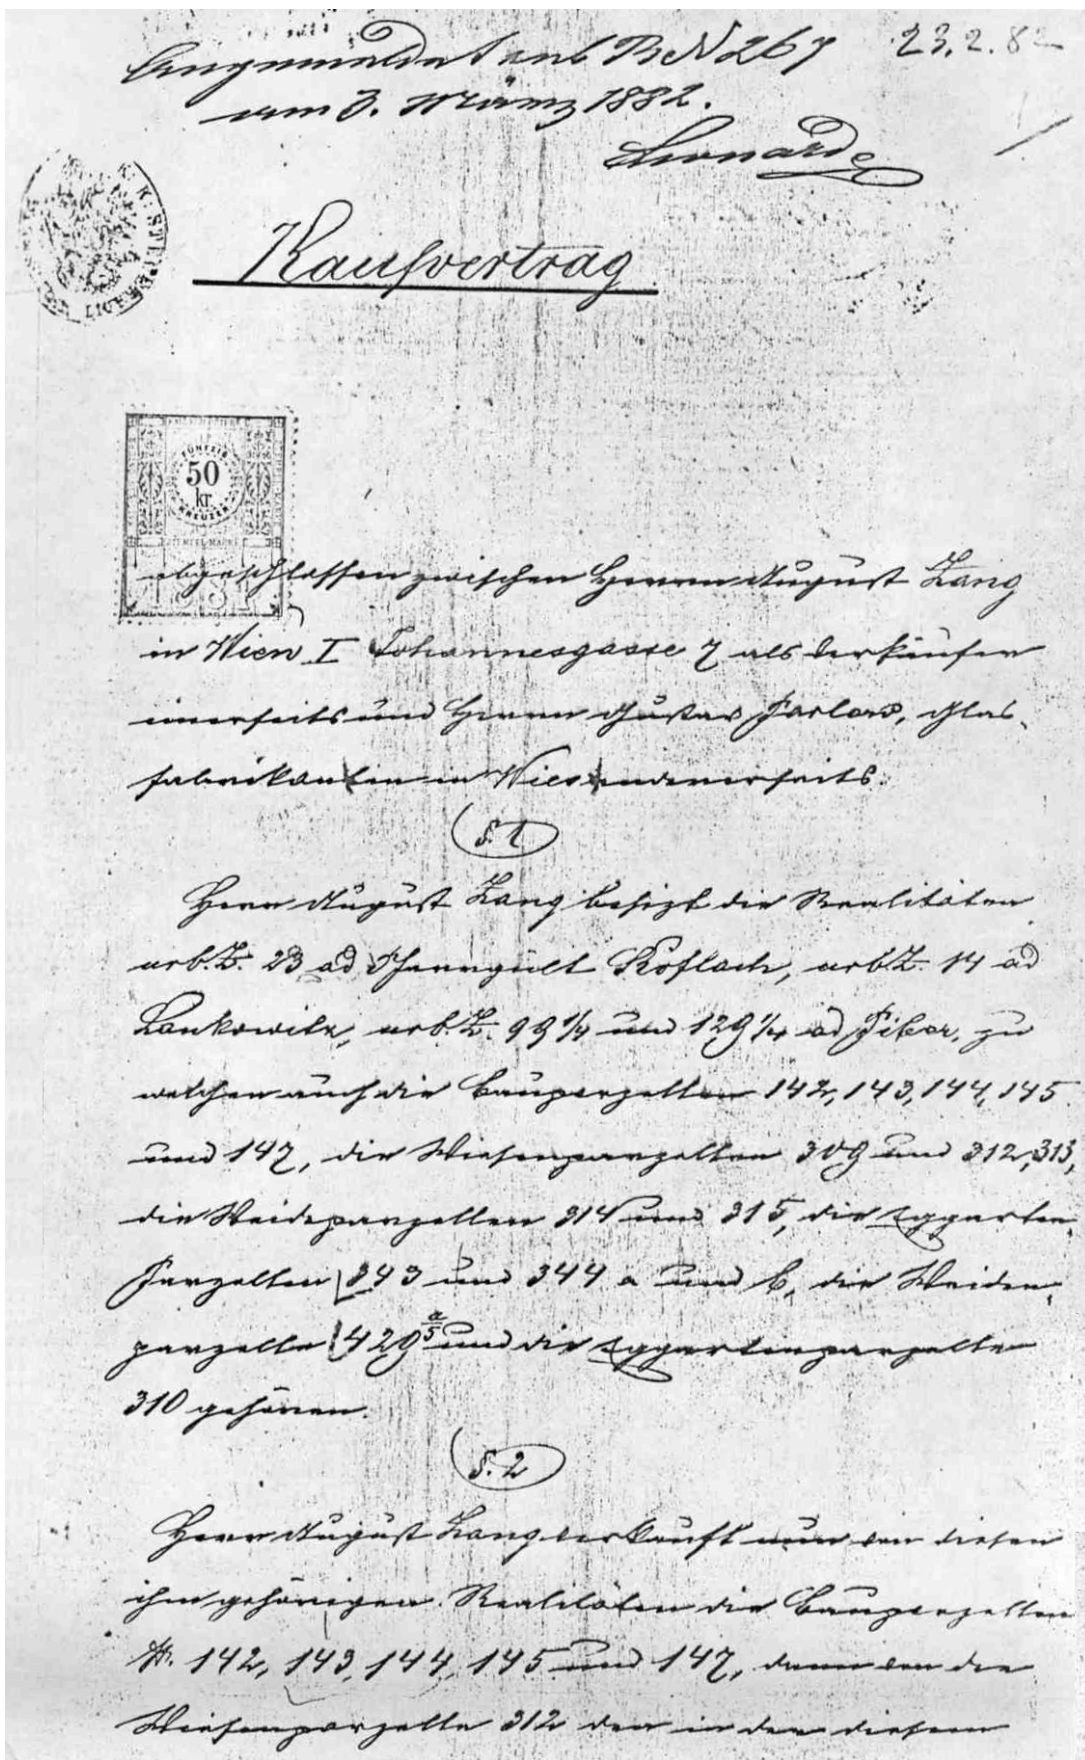 Angemeldet sub B.N 267 23.2.82
am 3. März 1882.
Kaufvertrag
K. K. ST
FÜNFZIG
50
kr.
KREUZER
STEMPEL MARKE
1881
abgeschlossen zwischen Herrn August Zang
in Wien I Johannesgasse 7 als Verkäufer
einerseits und Herrn Gustav, Glas-
fabrikanten in Wies andererseits.
§. 1
Herr August Zang besizt die Realitäten
urb. Z. 23 ad Pfarrgült Köflach, urb Z. 14 ad
Lankowitz, urb. Z. 99 1/4 und 129 1/4 ad Piber, zu
welchen auch die Bauparzellen 142, 143, 144, 145
und 147, die Wiesenparzellen 309 und 312, 313,
die Weideparzellen 314 und 315, die Eggarten-
parzellen 343 und 344 a und b, die Weiden-
parzelle 429 a/5 und die Eggartenparzelle
310 gehören.
§. 2
Herr August Zang verkauft nun von diesen
ihm gehörigen Realitäten die Bauparzellen
N. 142, 143, 144, 145 und 147, dann von der
Wiesenparzelle 312 den in der diesem